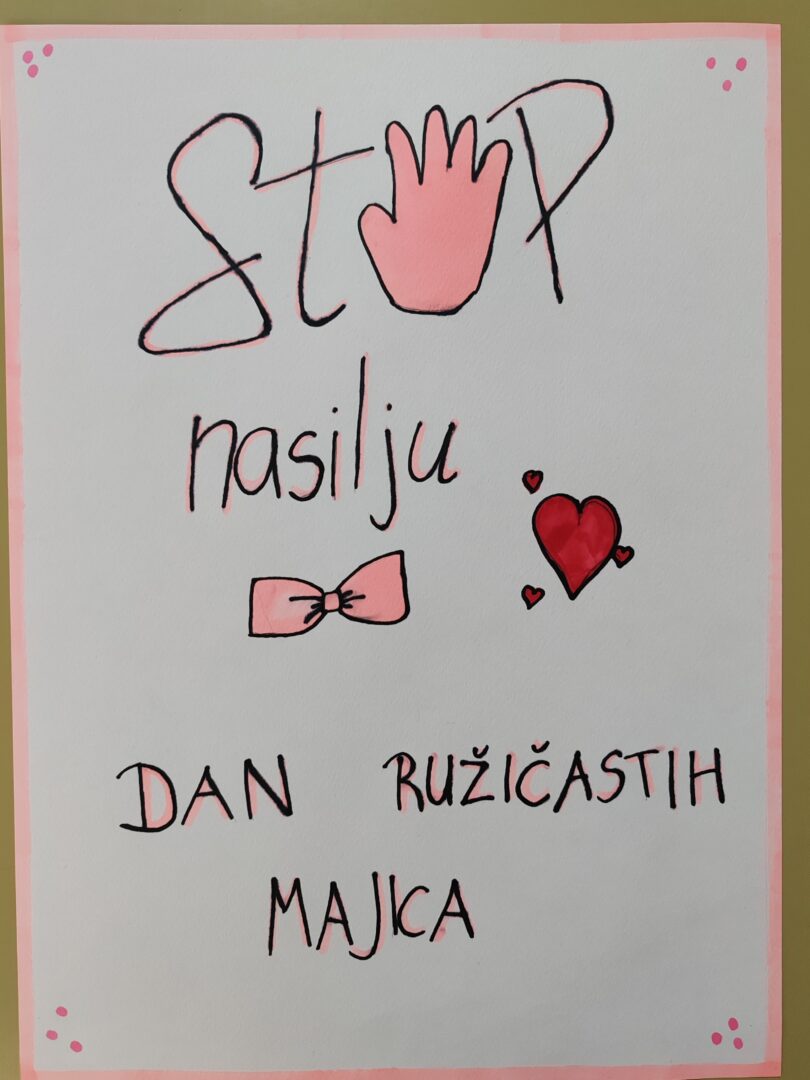 StOP
nasilju
DAN RUŽIČASTIH
MAJICA